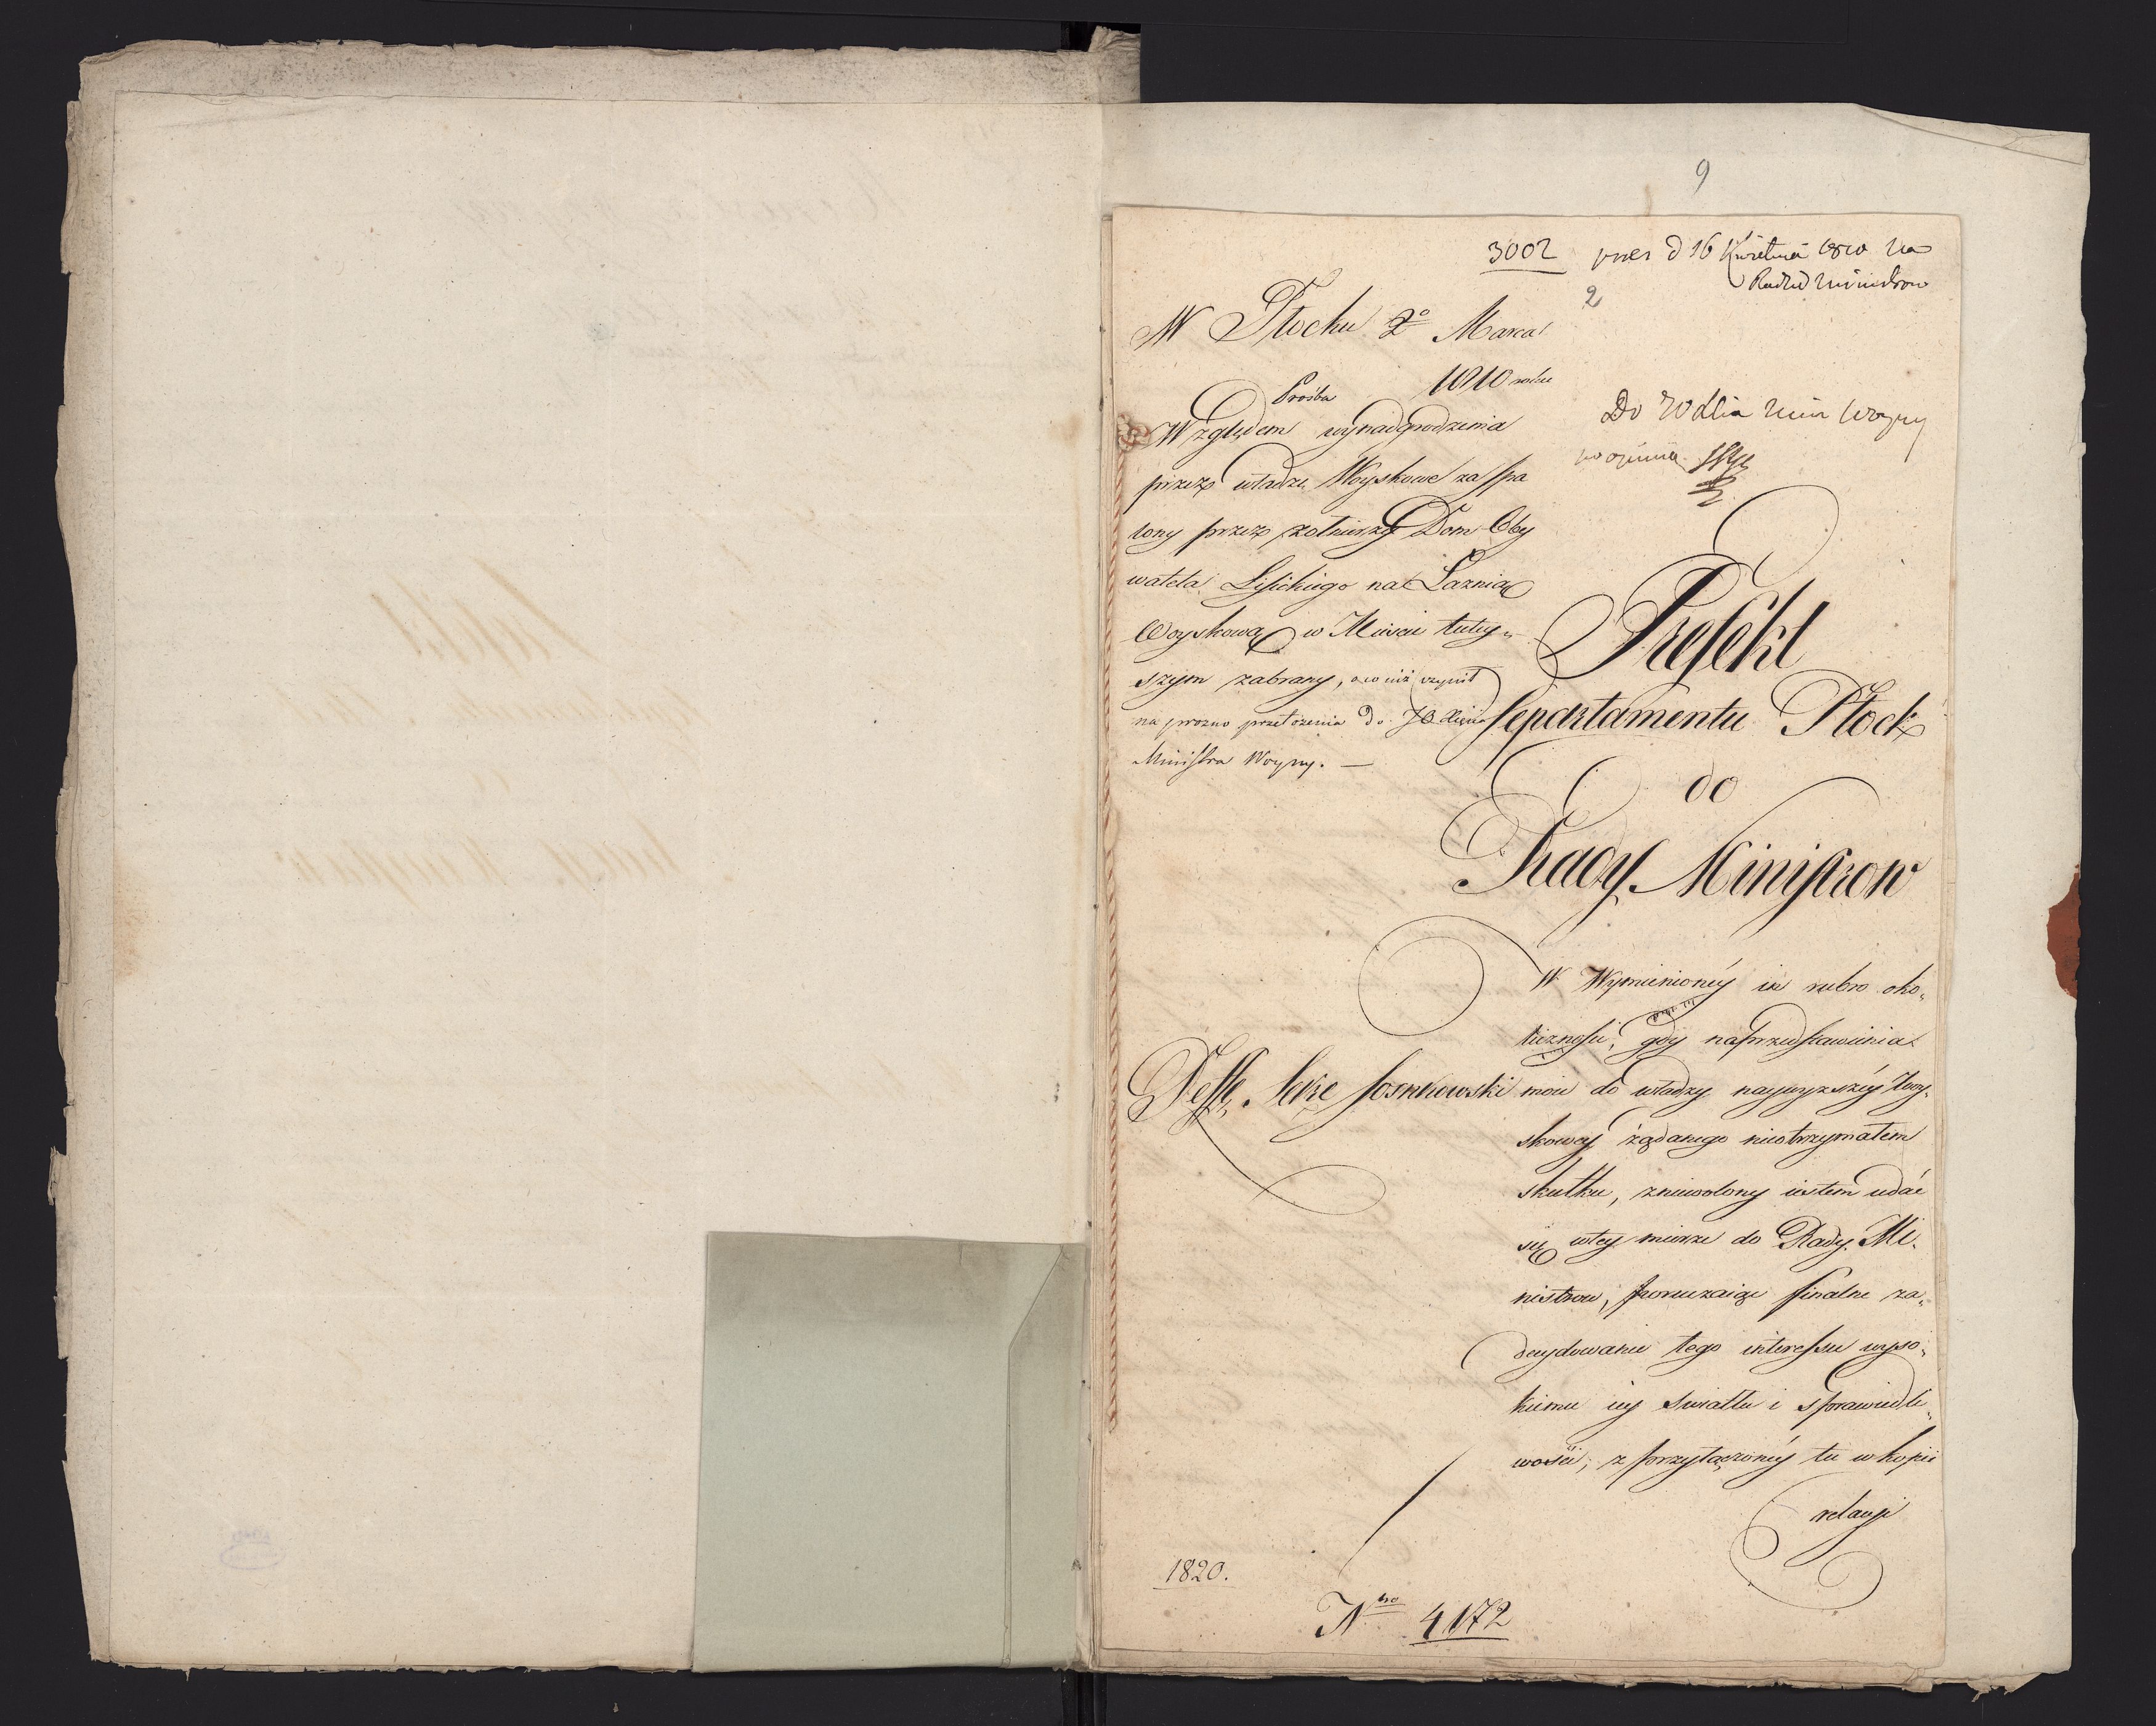 9
3002 pres d 16 Kwietnia 1810 na
Radzie Ministrow
2
W Płocku 2º Marca
1810 roku
Prośba
Względem wynadgrodzenia
przez władze Woyskowe za spa
lony przez żołnierzy Dom Oby
watela Lisickiego na Łaznią
Woyskową w Mieście tutey„
szym zabrany, o co iuż czynił
na prozno przełożenia do JO Xięcia
Ministra Woyny. —
Do JO Xcia Min Woyny
po opinią
Prefekt
Departamentu Płock
do
Rady Ministrow
W Wymienioney in rubro oko„
liczności, gdy na przedstawienia
moie do władzy naywyższey Woy„
skowey żądanego nieotrzymałem
skutku, zniewolony iestem udać
się w tey mierze do Rady Mi„
nistrow, poruczaiąc finalne za„
decydowanie tego interessu wyso„
kiemu iey Swiatłu i sprawiedli„
wości, z przyłączoney tu w kopii
relacyi
Sekre Sosnkowski
1820.
Nro 4172